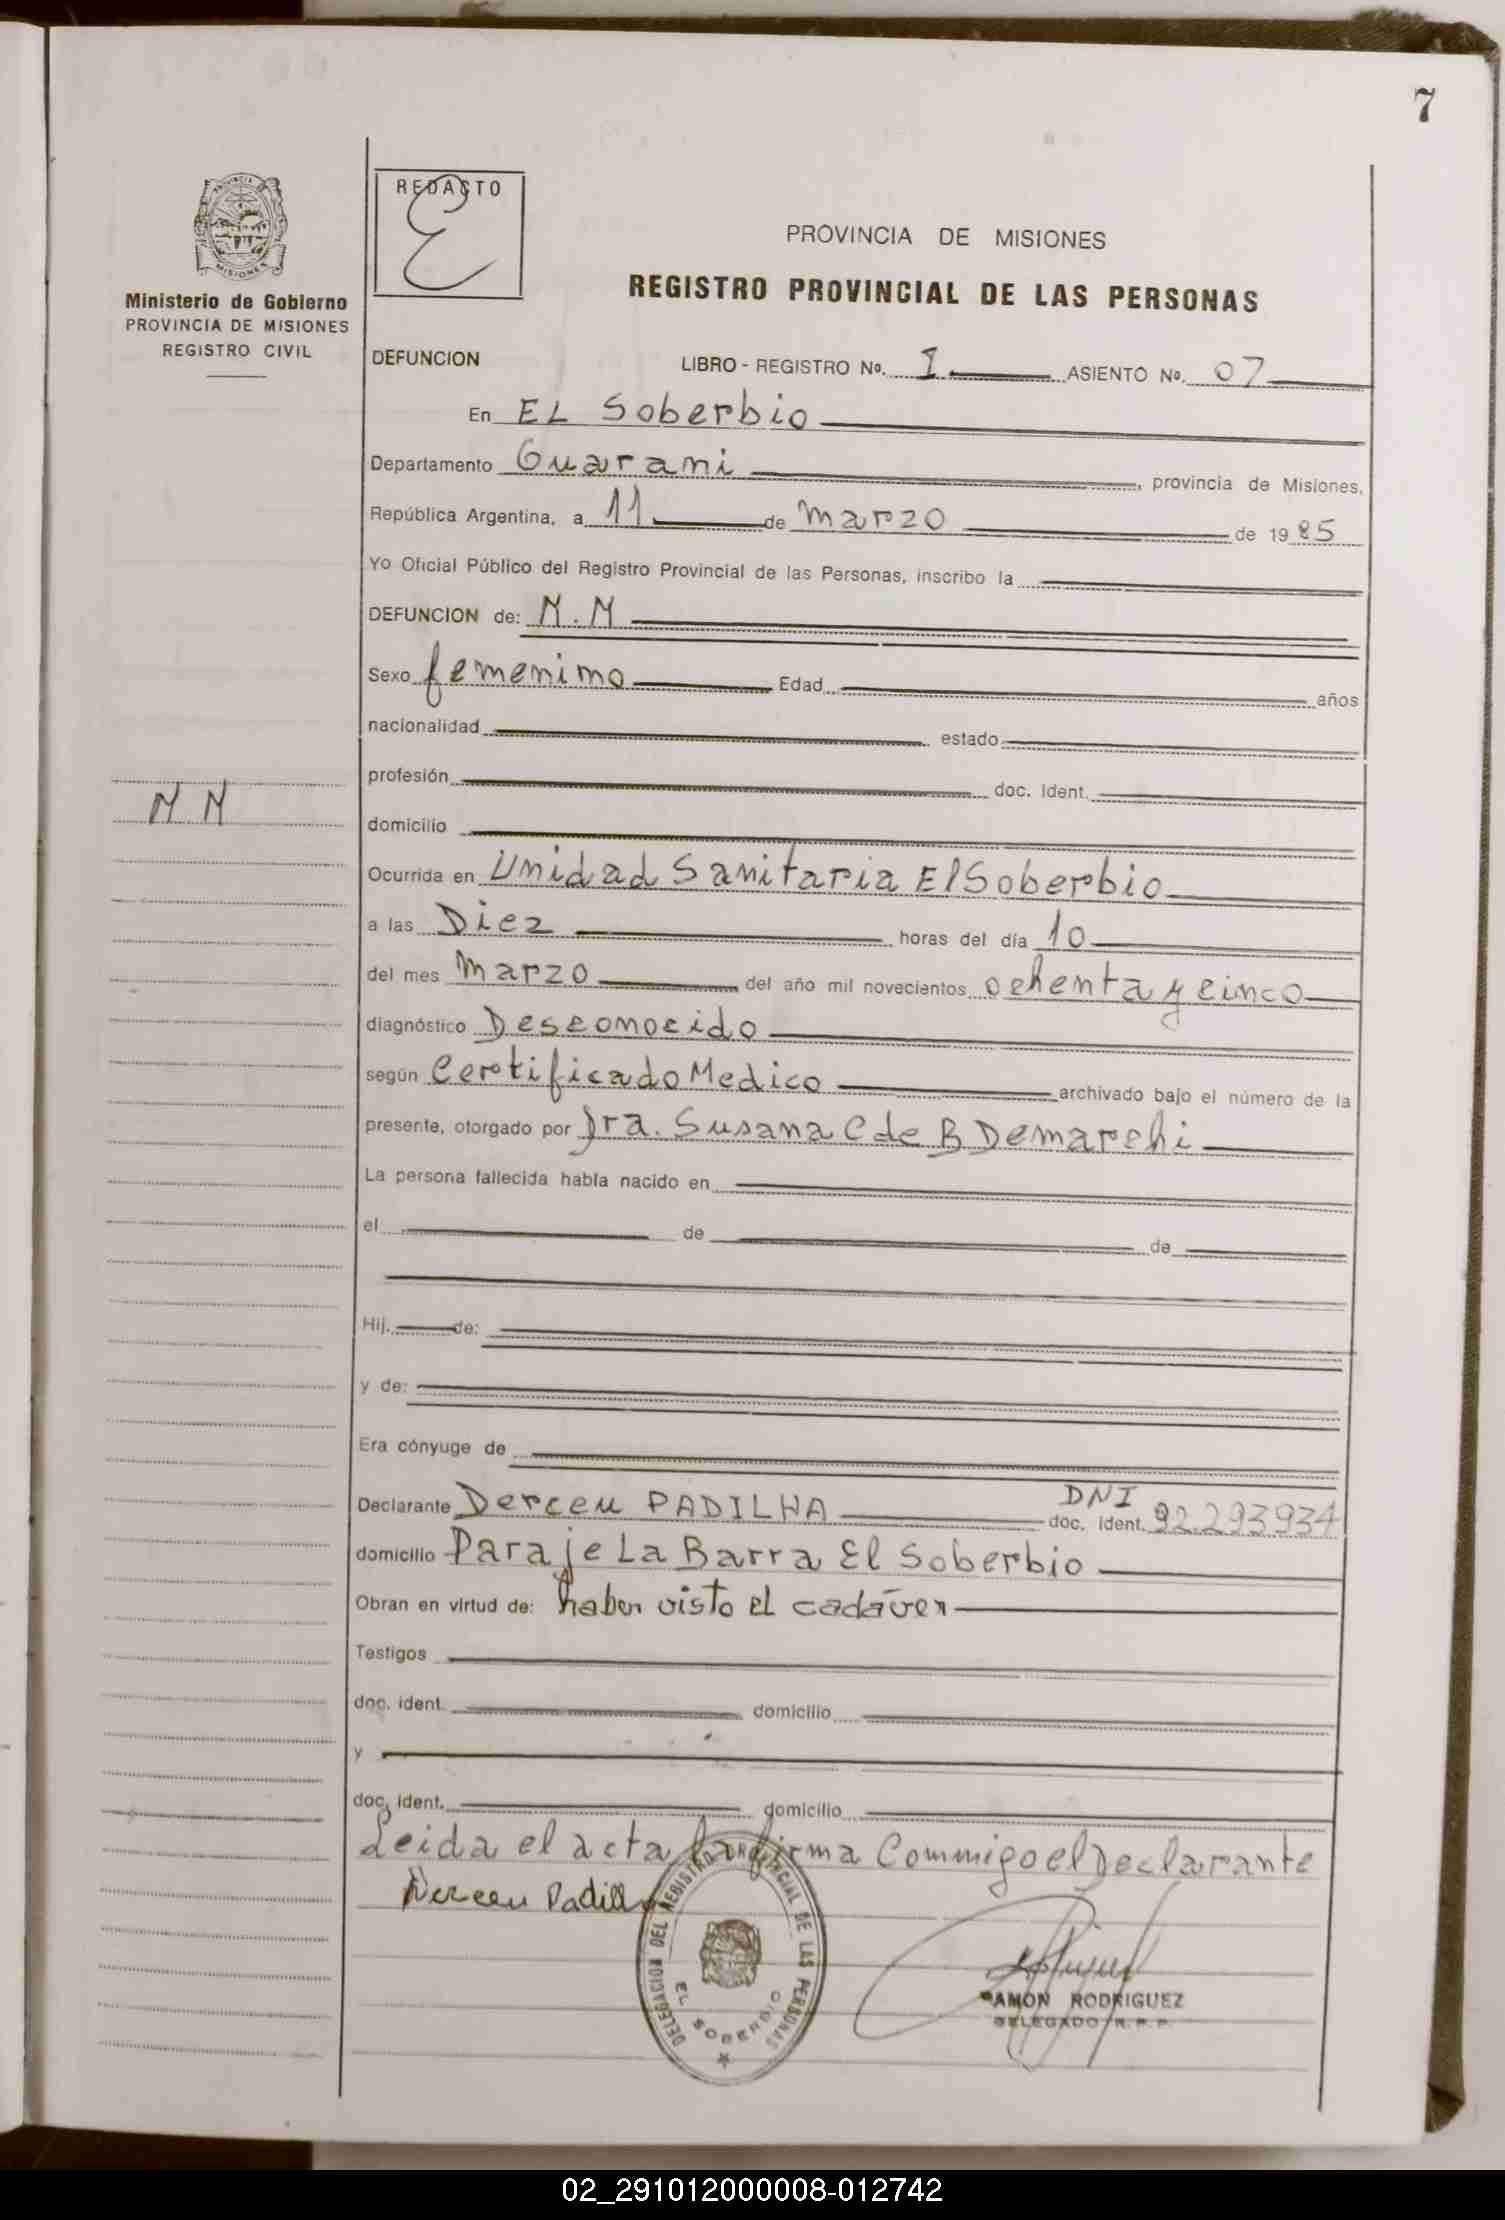 7
REDACTO
PROVINCIA DE MISIONES
REGISTRO PROVINCIAL DE LAS PERSONAS
PROVINCIA DE
MISIONES
Ministerio de Gobierno
PROVINCIA DE MISIONES
REGISTRO CIVIL
DEFUNCION LIBRO - REGISTRO Nº. I ASIENTO Nº. 07
En EL Soberbio
Departamento Guarani, provincia de Misiones,
República Argentina, a 11 de Marzo de 1985
Yo Oficial Público del Registro Provincial de las Personas, inscribo la
DEFUNCION de: N.N
Sexo femenino Edad años
nacionalidad estado
profesión doc. ident.
N N
domicilio
Ocurrida en Unidad Sanitaria El Soberbio
a las Diez horas del día 10
del mes Marzo del año mil novecientos ochenta y cinco
diagnóstico Desconocido
según Certificado Medico archivado bajo el número de la
presente, otorgado por Dra. Susana C de B Demarchi
La persona fallecida había nacido en
el de de
Hij. de:
y de:
Era cónyuge de
Declarante Derceu PADILHA DNI doc. ident. 92.293934
domicilio Paraje La Barra El Soberbio
Obran en virtud de: haber visto el cadáver
Testigos
doc. ident. domicilio
y
doc. ident. domicilio
Leida el acta la firma Conmigo el Declarante
Derceu Padilha
DELEGACION DEL REGISTRO PROVINCIAL DE LAS PERSONAS
EL SOBERBIO
RAMON RODRIGUEZ
DELEGADO R.P.P.
02_291012000008-012742